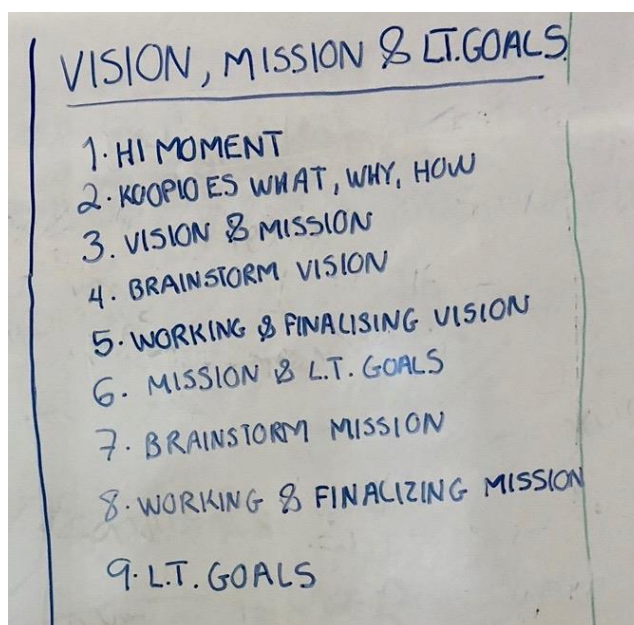 VISION, MISSION & LT.GOALS.
1. HI MOMENT
2. KOOPIO ES WHAT, WHY, HOW
3. VISION & MISSION
4. BRAINSTORM VISION
5. WORKING & FINALISING VISION
6. MISSION & L.T. GOALS
7. BRAINSTORM MISSION
8. WORKING & FINALIZING MISSION
9. L.T. GOALS